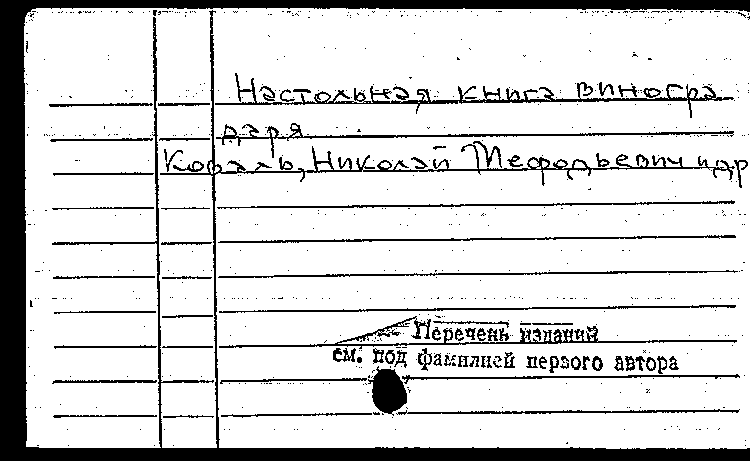 Настольная книга виногра
даря
Коваль, Николай Мефодьевич и др
Перечень изданий
см. под фамилией первого автора